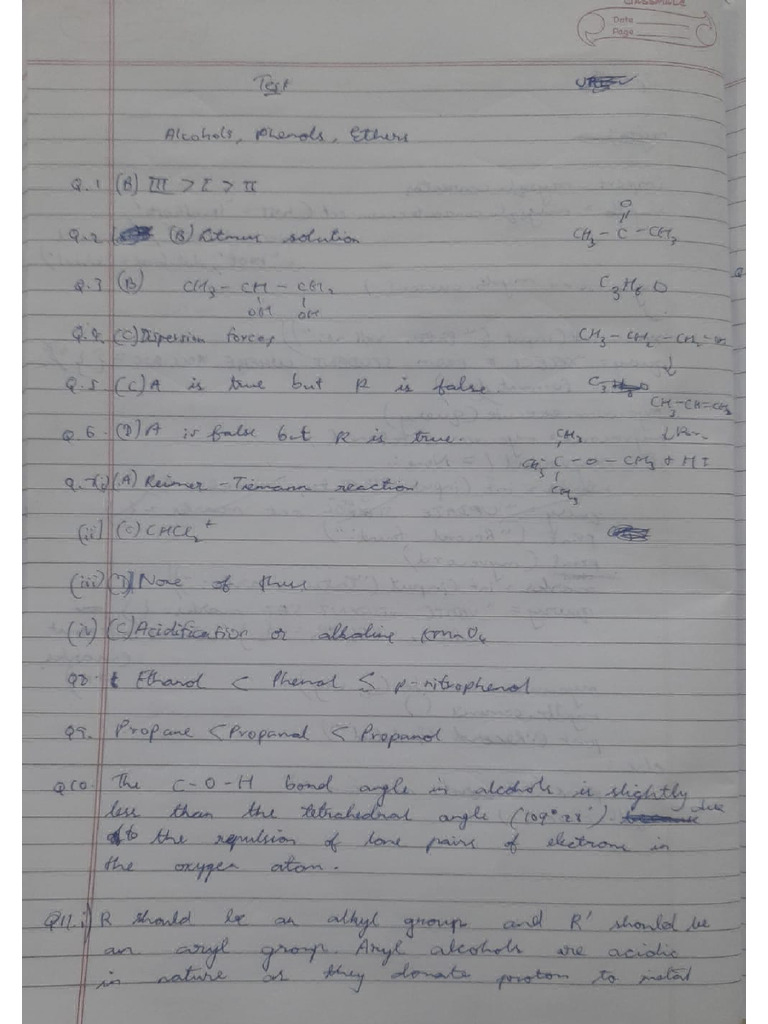 CLASSMATE
Date
Page
Test
Alcohols, Phenols, Ethers
Q.1 (B) III > I > II
Q.2 (B) Litmus solution
O
CH3 - C - CH3
Q.3 (B) CH3 - CH - CH2
OH OH
C3H6O
Q.4. (C) Dispersion forces
CH3 - CH2 - CH2 - OH
Q.5 (C) A is true but R is false
C3
CH3-CH=CH2
Q 6. (D) A is false but R is true.
CH3
CH3- C - O - CH3 + HI
CH3
Q.7(i) (A) Reimer - Tiemann reaction
(ii) (C) CHCl2+
(iii) (D) None of these
(iv) (C) Acidification or alkaline KMnO4
Q8. Ethanol < Phenol < p-nitrophenol
Q9. Propane < Propanal < Propanol
Q10. The C-O-H bond angle in alcohols is slightly
less than the tetrahedral angle (109°28'). due
to the repulsion of lone pairs of electrons in
the oxygen atom.
Q11. i) R should be an alkyl group and R' should be
an aryl group. Aryl alcohols are acidic
in nature as they donate proton to metal